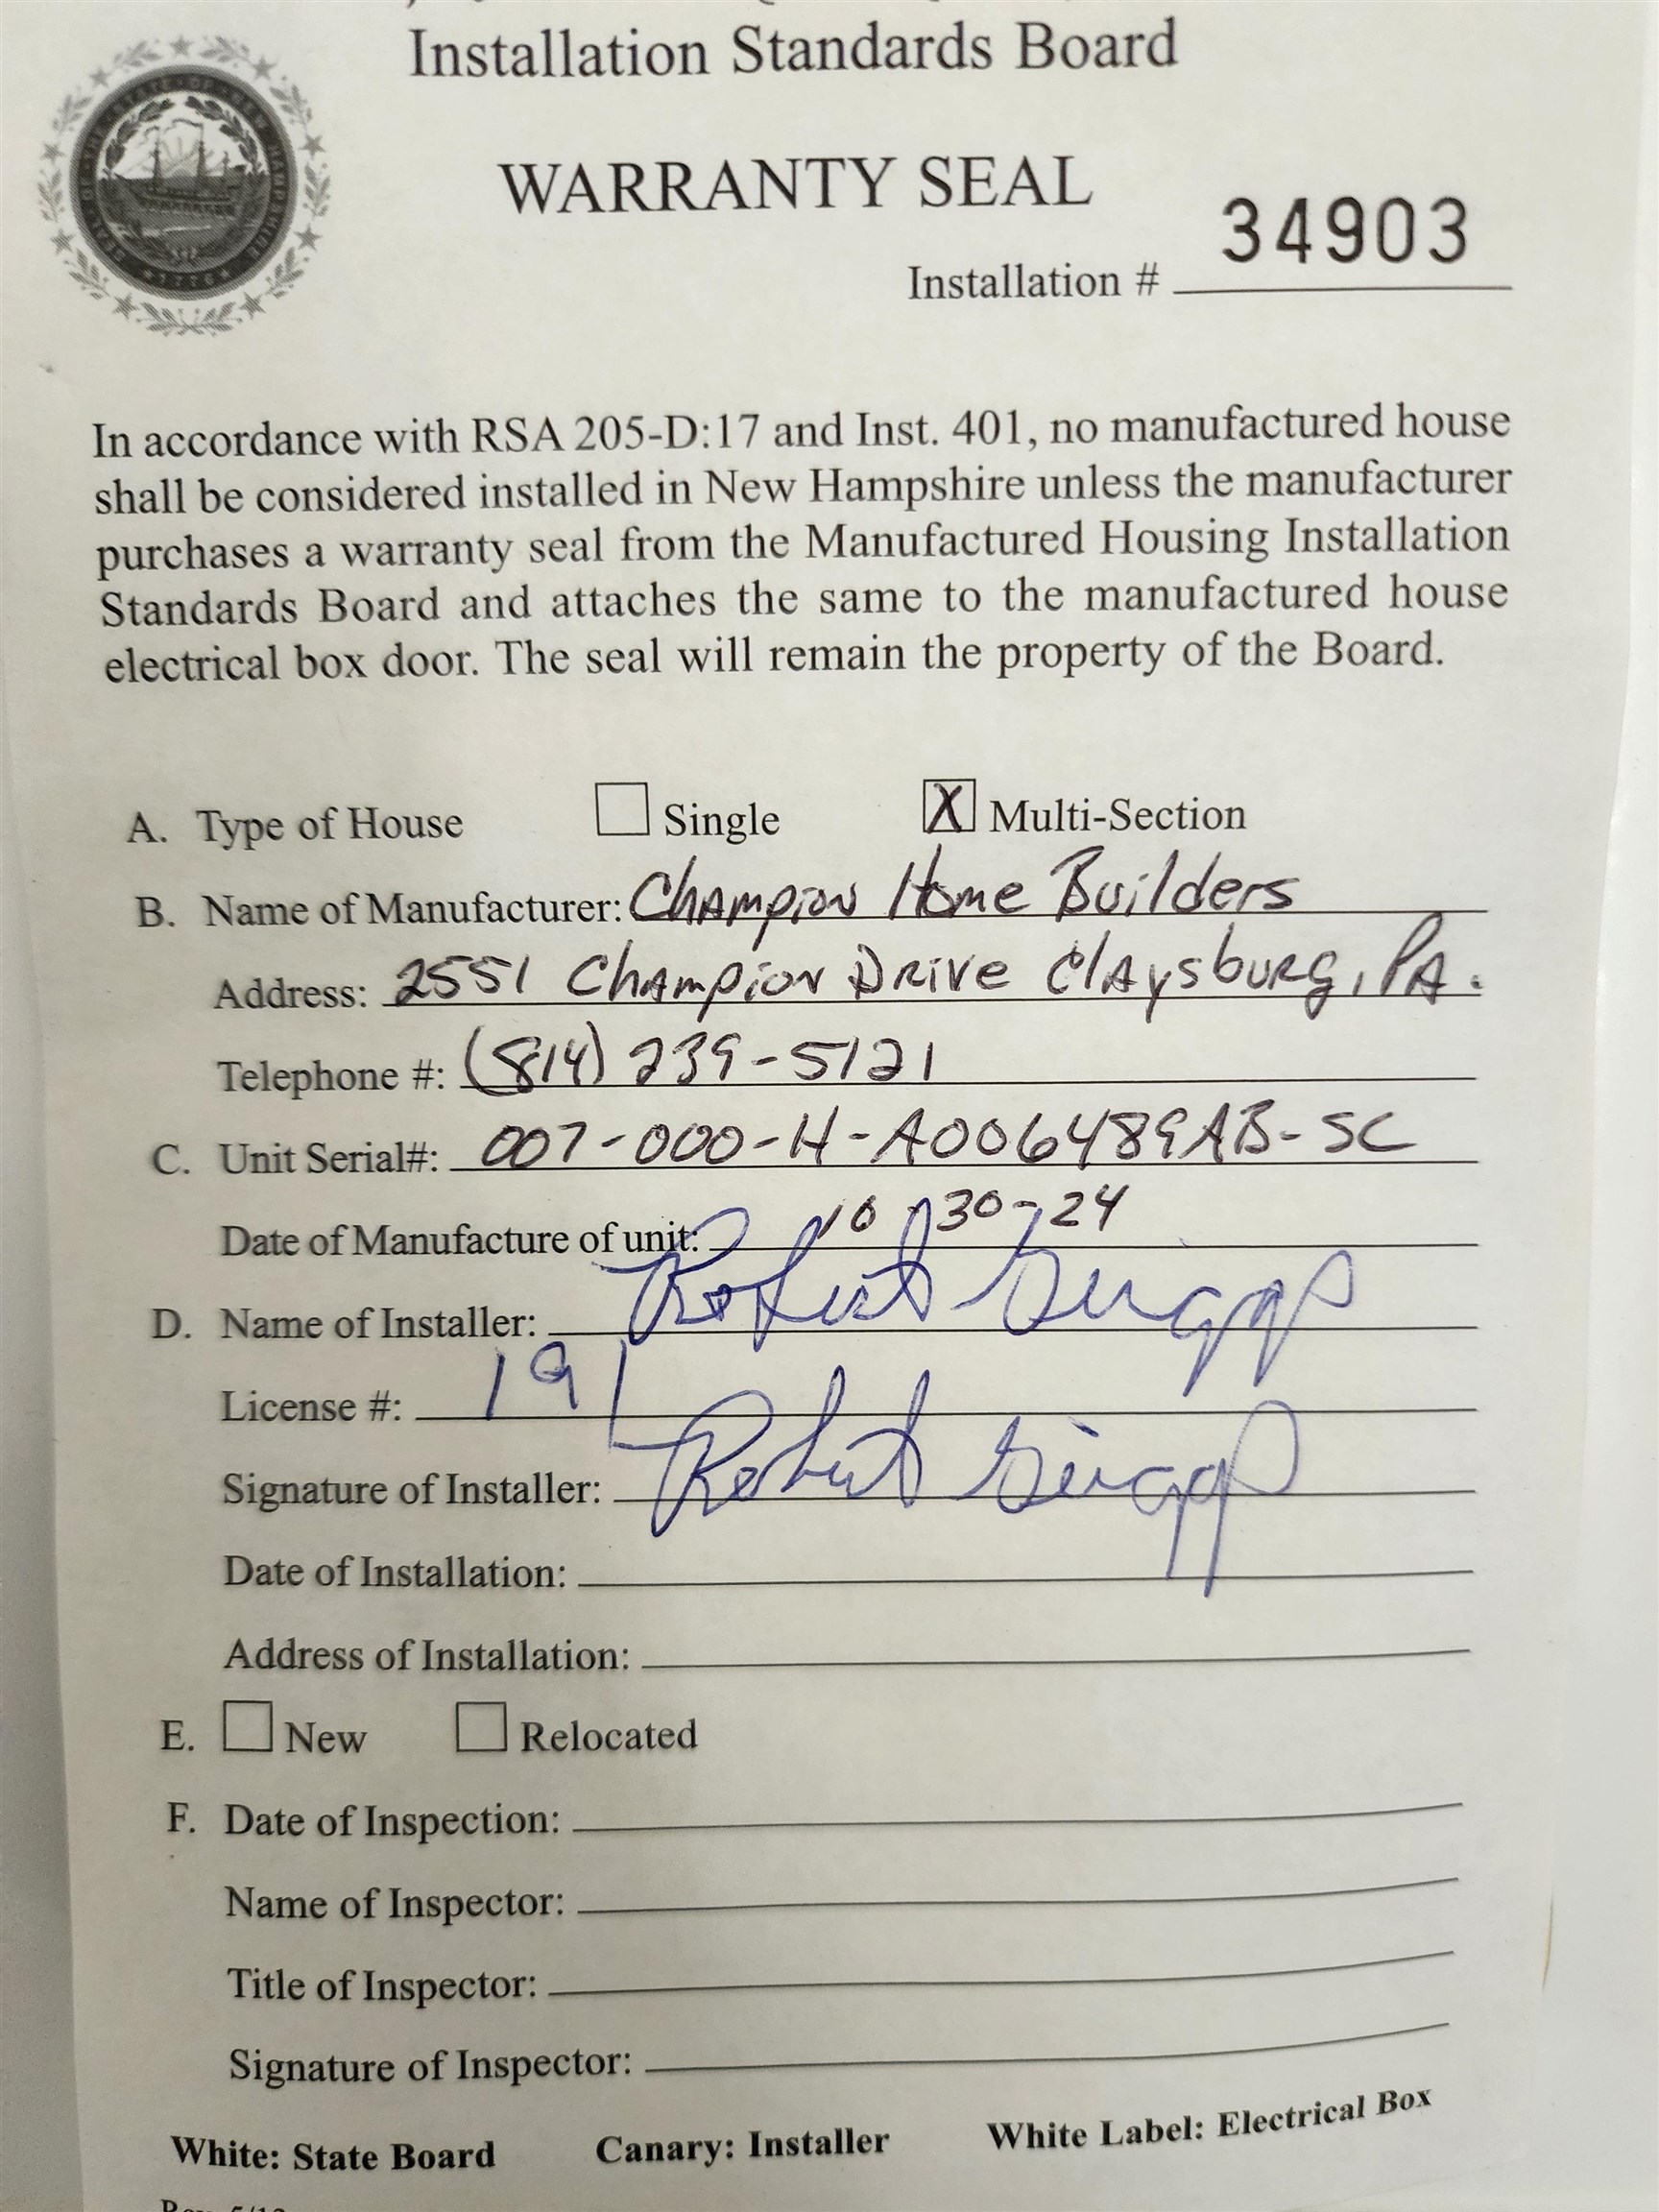 Installation Standards Board
WARRANTY SEAL
34903
Installation #
In accordance with RSA 205-D:17 and Inst. 401, no manufactured house
shall be considered installed in New Hampshire unless the manufacturer
purchases a warranty seal from the Manufactured Housing Installation
Standards Board and attaches the same to the manufactured house
electrical box door. The seal will remain the property of the Board.
A. Type of House Single X Multi-Section
B. Name of Manufacturer: Champion Home Builders
Address: 2551 Champion Drive Claysburg, PA.
Telephone #: (814) 239-5121
C. Unit Serial#: 007-000-H-A006489AB-SC
Date of Manufacture of unit: 10-30-24
D. Name of Installer: Robert
License #: 191
Signature of Installer: Robert
Date of Installation:
Address of Installation:
E. New Relocated
F. Date of Inspection:
Name of Inspector:
Title of Inspector:
Signature of Inspector:
White: State Board Canary: Installer White Label: Electrical Box